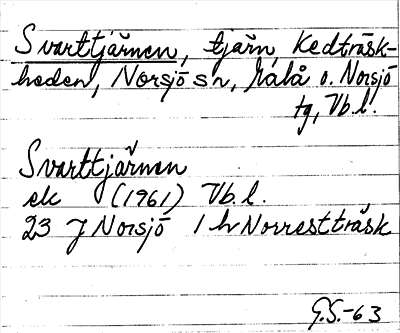 Svarttjärnen, tjärn, Kedträsk-
heden, Norsjö sn, Malå o. Norsjö
tg, Vb.l.
Svarttjärnen
ek (1961) Vb.l.
23 J Norsjö 1 h Norrestträsk
G.S.-63